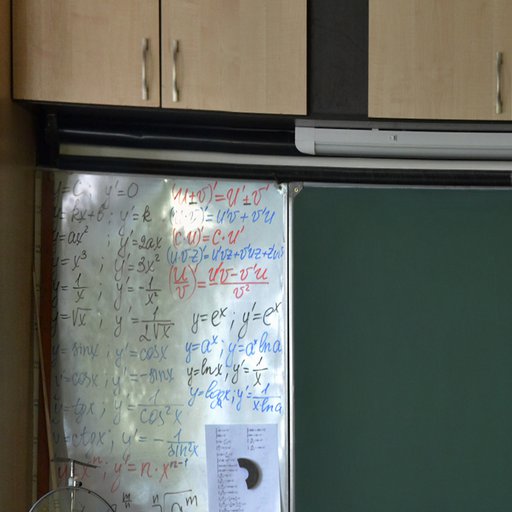 y=C; y'=0
y=kx+b; y'=k
y=ax²; y'=2ax
y=x³; y'=3x²
y=1/x; y'=-1/x²
y=√x; y'=1/2√x
y=sinx; y'=cosx
y=cosx; y'=-sinx
y=tgx; y'=1/cos²x
y=ctgx; y'=-1/sin²x
y=xⁿ; y'=n·xⁿ⁻¹
(u±v)'=u'±v'
(u·v)'=u'v+v'u
(c·u)'=c·u'
(u/v)'=u'v-v'u/v²
y=eˣ; y'=eˣ
y=aˣ; y'=aˣlna
y=lnx; y'=1/x
y=logₐx; y'=1/xlna